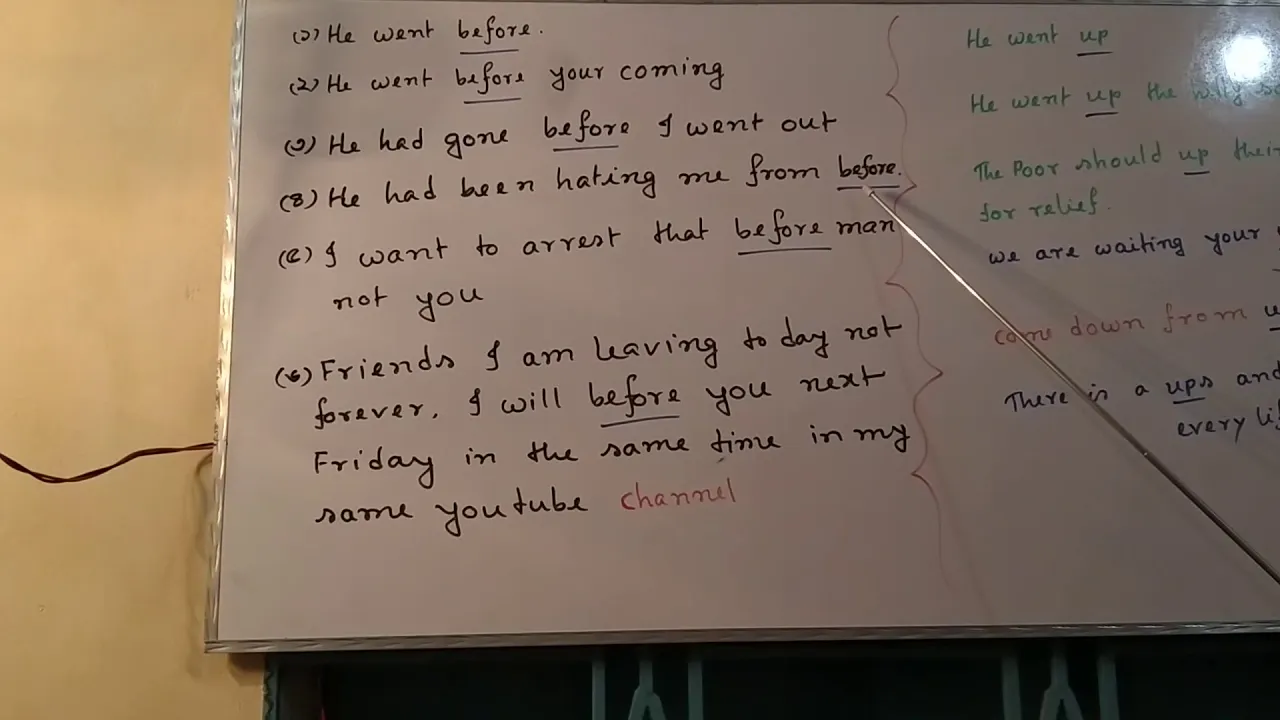 (১) He went before.
(২) He went before your coming
(৩) He had gone before I went out
(৪) He had been hating me from before.
(৫) I want to arrest that before man
not you
(৬) Friends I am leaving to day not
forever. I will before you next
Friday in the same time in my
same youtube channel
He went up
He went up the
The Poor should up their
for relief.
we are waiting your
come down from
There is a ups and
every